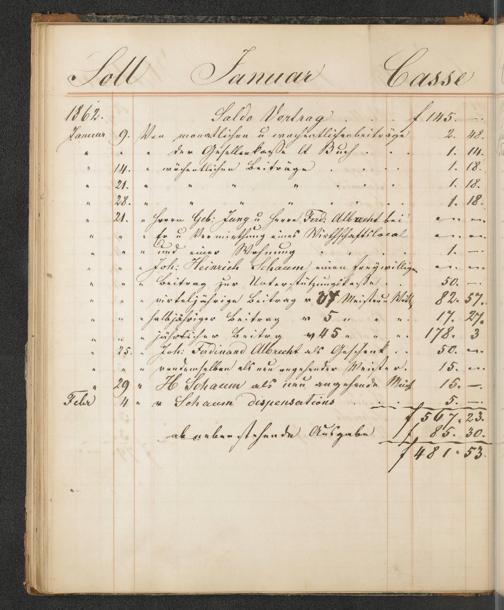 Soll Januar Casse
1862. Saldo Vortrag . . . . f 145. —
Januar 9. Von monatlichen u wochentlichenbeiträge 2. 48.
" " " der Gesellenkasse lt Buch . . 1. 14.
" 14. " wöchentlichen Beiträge . . . . 1. 18.
" 21. " " " " . . 1. 18.
" 28. " " " " . . 1. 18.
" 21. " Herrn Geb: Jung u Herrn Ferd. Albrecht bei
" " " Er u Vermiethung eines Wirthschaftslocal
" " " und einer Wohnung . . . 1. —
" " " Joh: Heinrich Schaum, einen freywilligen
" " " Beitrag zur Unterstützungskasse . . 50. —
" " " virteljährige Beitrag v 37 Meister 82. 57.
" " " halbjähriger Beitrag v 5 " " " 17. 27.
" " " jährlicher Beitrag v 45 " " " 178. 3
" 25. " Joh. Ferdinand Albrecht als Geschenk . . 50. —
" " " vondemselben als neu angehender Meister. 15. —
" 29 " H Schaum als neu angehende 15. —
Febr 4 " " Schaum dispensations . . . 5. —
f 567. 23.
ab nebenstehende Ausgabe f 85. 30.
f 481. 53.